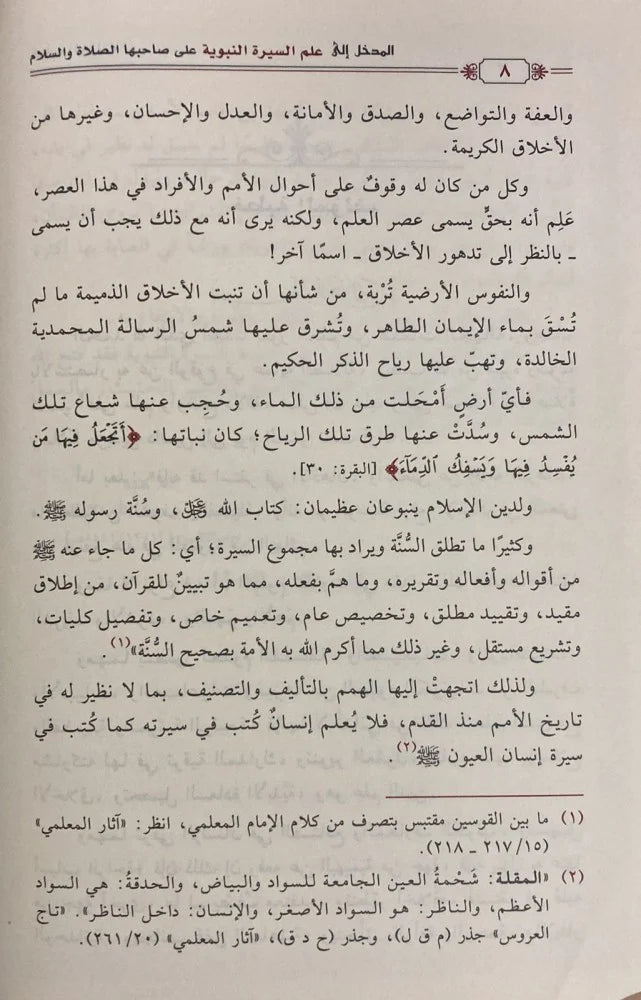 المدخل إلى علم السيرة النبوية على صاحبها الصلاة والسلام
٨
والعفة والتواضع، والصدق والأمانة، والعدل والإحسان، وغيرها من
الأخلاق الكريمة.
وكل من كان له وقوفٌ على أحوال الأمم والأفراد في هذا العصر،
عَلِم أنه بحقٍّ يسمى عصر العلم، ولكنه يرى أنه مع ذلك يجب أن يسمى
ـ بالنظر إلى تدهور الأخلاق ـ اسمًا آخر!
والنفوس الأرضية تُرْبة، من شأنها أن تنبت الأخلاق الذميمة ما لم
تُسْقَ بماء الإيمان الطاهر، وتُشرق عليها شمسُ الرسالة المحمدية
الخالدة، وتهبّ عليها رياح الذكر الحكيم.
فأيّ أرضٍ أَمْحَلت من ذلك الماء، وحُجِب عنها شعاع تلك
الشمس، وسُدَّتْ عنها طرق تلك الرياح؛ كان نباتها: ﴿أَتَجْعَلُ فِيهَا مَن
يُفْسِدُ فِيهَا وَيَسْفِكُ ٱلدِّمَآءَ﴾ [البقرة: ٣٠].
ولدين الإسلام ينبوعان عظيمان: كتاب الله ﷿، وسُنَّة رسوله ﷺ.
وكثيرًا ما تطلق السُّنَّة ويراد بها مجموع السيرة؛ أي: كل ما جاء عنه ﷺ
من أقواله وأفعاله وتقريره، وما همَّ بفعله، مما هو تبيينٌ للقرآن، من إطلاق
مقيد، وتقييد مطلق، وتخصيص عام، وتعميم خاص، وتفصيل كليات،
وتشريع مستقل، وغير ذلك مما أكرم الله به الأمة بصحيح السُّنَّة»(١).
ولذلك اتجهتْ إليها الهمم بالتأليف والتصنيف، بما لا نظير له في
تاريخ الأمم منذ القدم، فلا يُعلم إنسانٌ كُتب في سيرته كما كُتب في
سيرة إنسان العيون ﷺ(٢).
(١) ما بين القوسين مقتبس بتصرف من كلام الإمام المعلمي، انظر: «آثار المعلمي»
(١٥/ ٢١٧ ـ ٢١٨).
(٢) «المقلة: شَحْمةُ العين الجامعة للسواد والبياض، والحدقةُ: هي السواد
الأعظم، والناظر: هو السواد الأصغر، والإنسان: داخل الناظر». «تاج
العروس» جذر (م ق ل)، وجذر (ح د ق)، «آثار المعلمي» (٢٠/ ٢٦١).